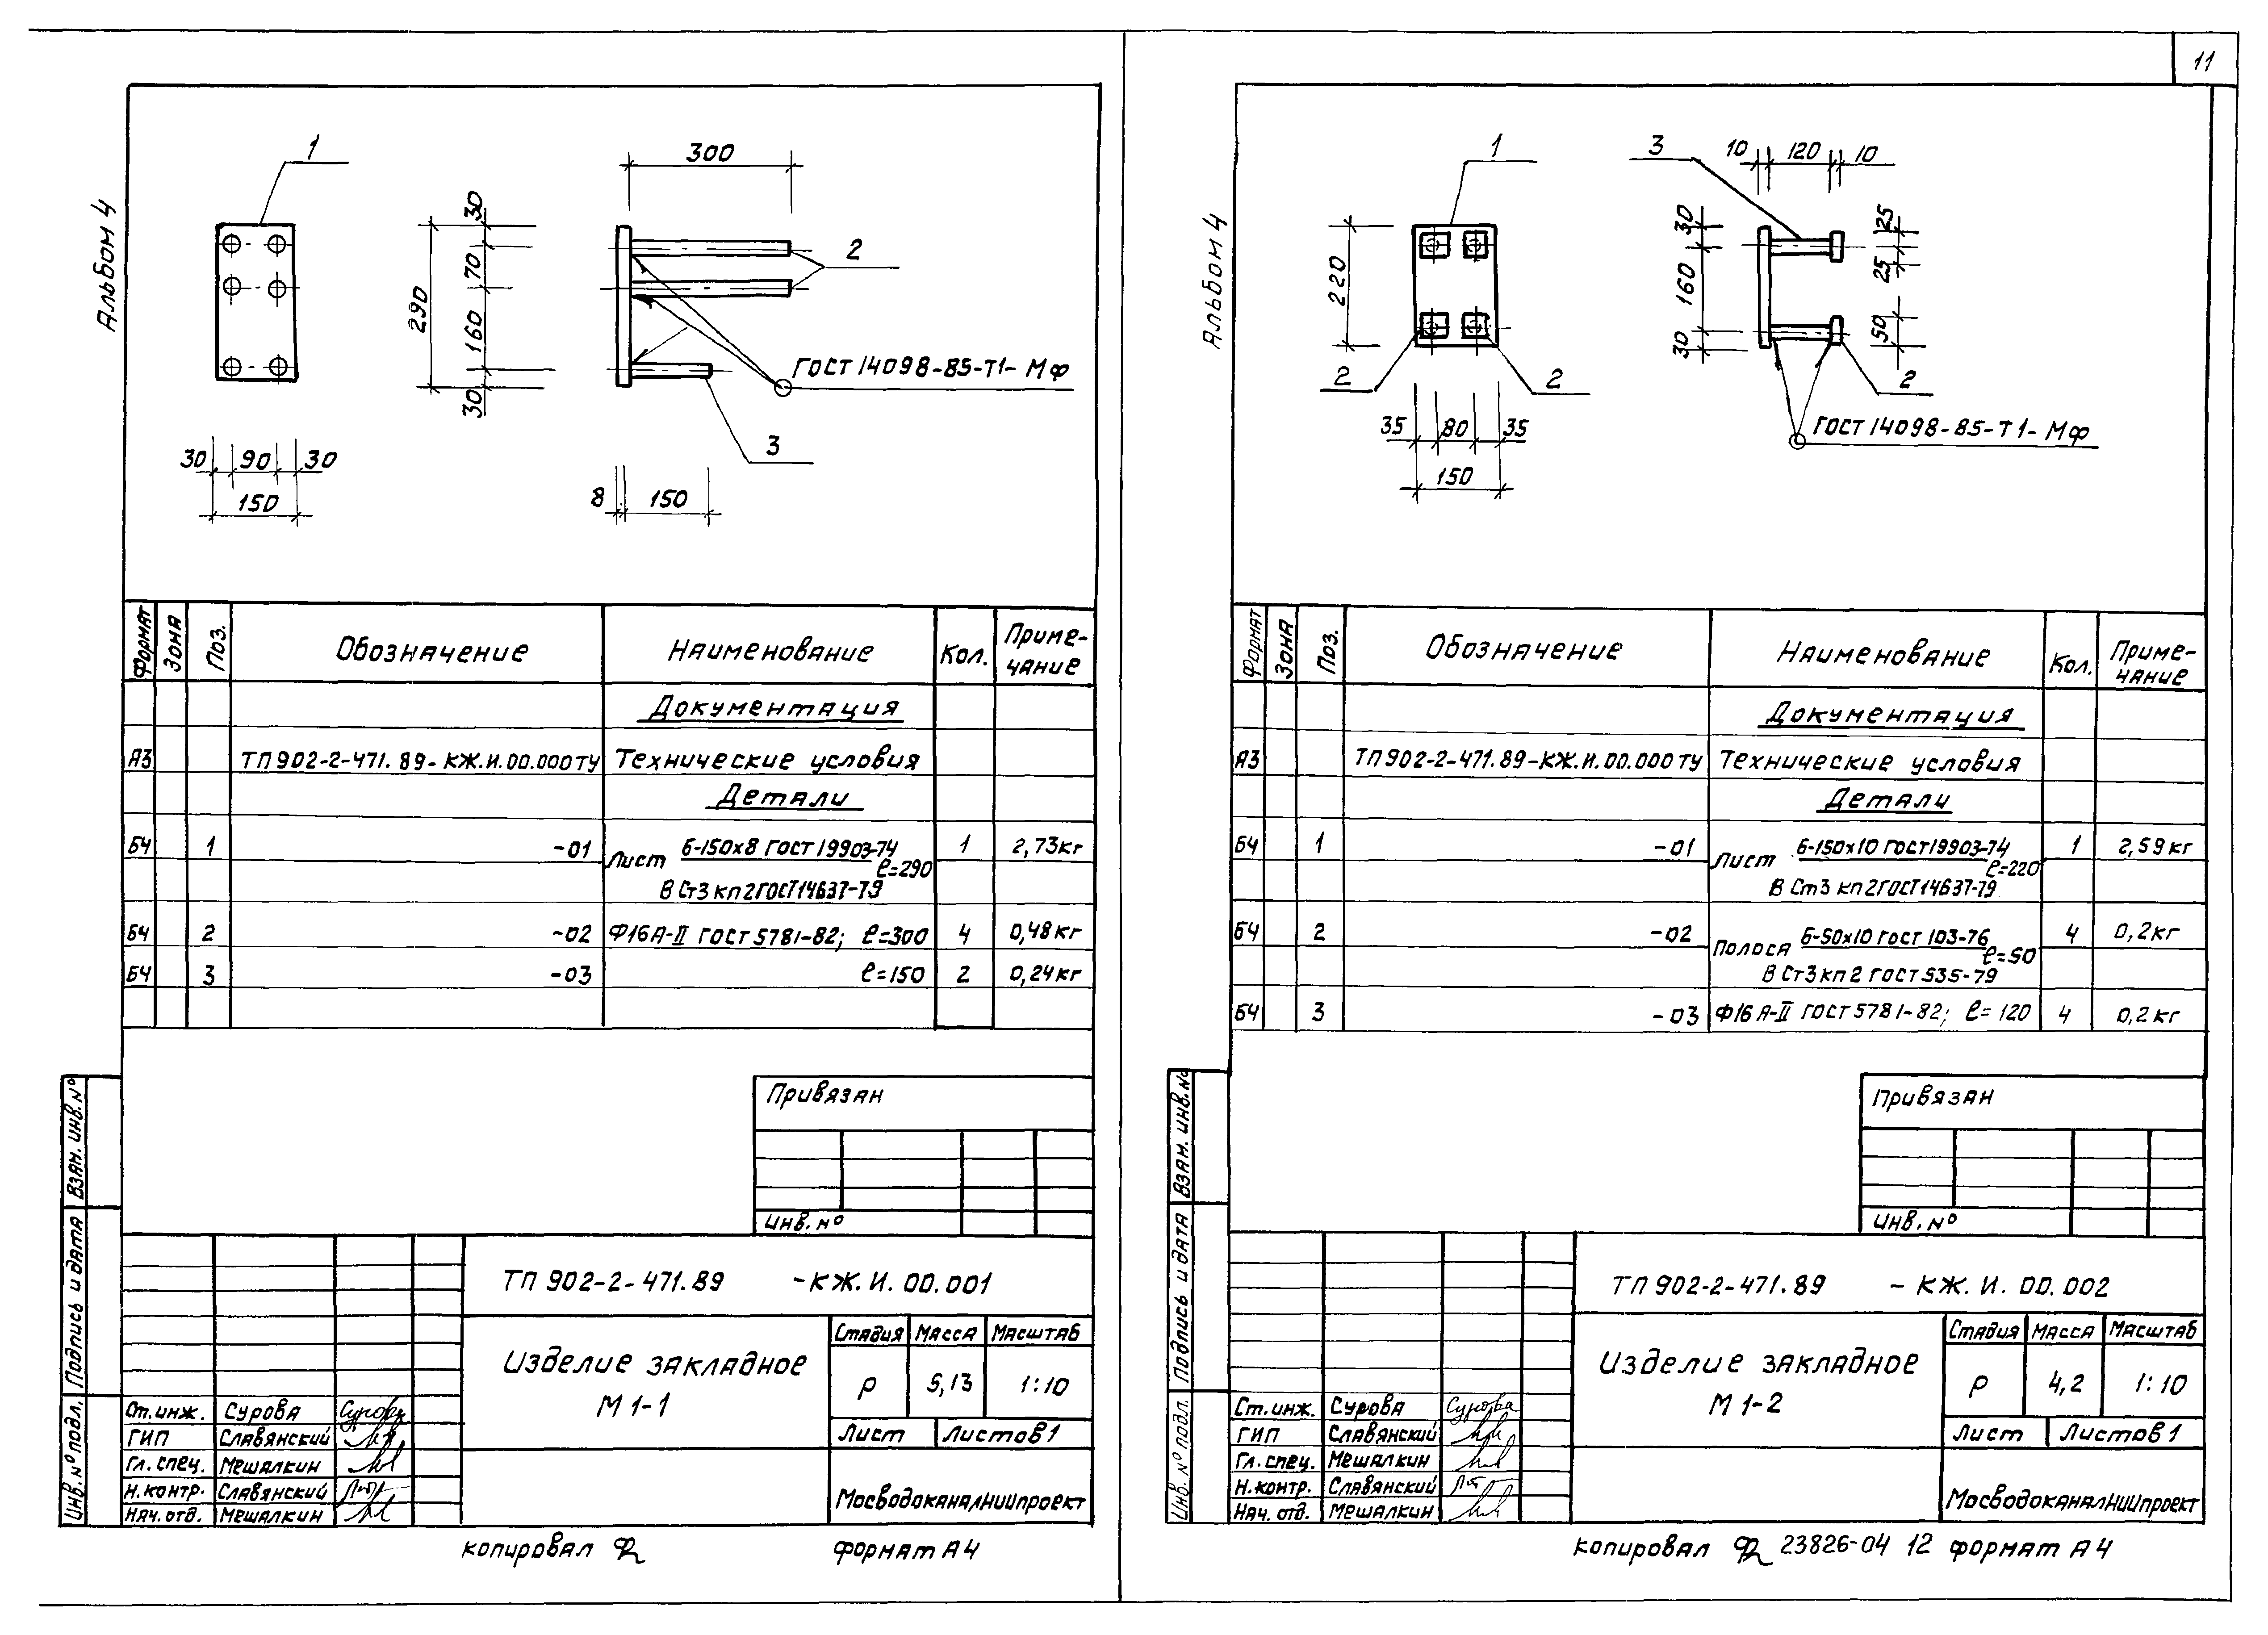 11
Альбом 4
1
30
90
30
150
290
30
70
160
30
300
2
ГОСТ 14098-85-Т1-Мф
3
8
150
Формат
Зона
Поз.
Обозначение
Наименование
Кол.
Приме-
чание
Документация
А3 ТП902-2-471.89-КЖ.И.00.000ТУ Технические условия
Детали
БЧ 1 -01 Лист Б-150х8 ГОСТ19903-74 1 2,73кг
ℓ=290
В Ст3 кп2ГОСТ14637-79
БЧ 2 -02 Ф16А-II ГОСТ5781-82; ℓ=300 4 0,48кг
БЧ 3 -03 ℓ=150 2 0,24кг
Привязан
Инв. №
Взам. инв. №
Подпись и дата
Инв. № подл.
ТП 902-2-471.89 -КЖ.И.00.001
Изделие закладное
М 1-1
Стадия Масса Масштаб
Р 5,13 1:10
Лист Листов 1
Ст. инж. Сурова
ГИП Славянский
Гл. спец. Мешалкин
Н. контр. Славянский
Нач. отд. Мешалкин
МосводоканалНИИпроект
копировал формат А4
Альбом 4
1
220
2
2
35
80
35
150
3
10
120
10
30
160
30
25
25
50
2
ГОСТ 14098-85-Т1-Мф
Формат
Зона
Поз.
Обозначение
Наименование
Кол.
Приме-
чание
Документация
А3 ТП902-2-471.89-КЖ.И.00.000ТУ Технические условия
Детали
БЧ 1 -01 Лист Б-150х10 ГОСТ19903-74 1 2,59кг
ℓ=220
В Ст3 кп2ГОСТ14637-79
БЧ 2 -02 Полоса Б-50х10 ГОСТ 103-76 4 0,2кг
ℓ=50
В Ст3кп2 ГОСТ535-79
БЧ 3 -03 Ф16А-II ГОСТ5781-82; ℓ=120 4 0,2кг
Привязан
Инв. №
Взам. инв. №
Подпись и дата
Инв. № подл.
ТП 902-2-471.89 -КЖ.И.00.002
Изделие закладное
М 1-2
Стадия Масса Масштаб
Р 4,2 1:10
Лист Листов 1
Ст. инж. Сурова
ГИП Славянский
Гл. спец. Мешалкин
Н. контр. Славянский
Нач. отд. Мешалкин
МосводоканалНИИпроект
копировал 23826-04 12 формат А4